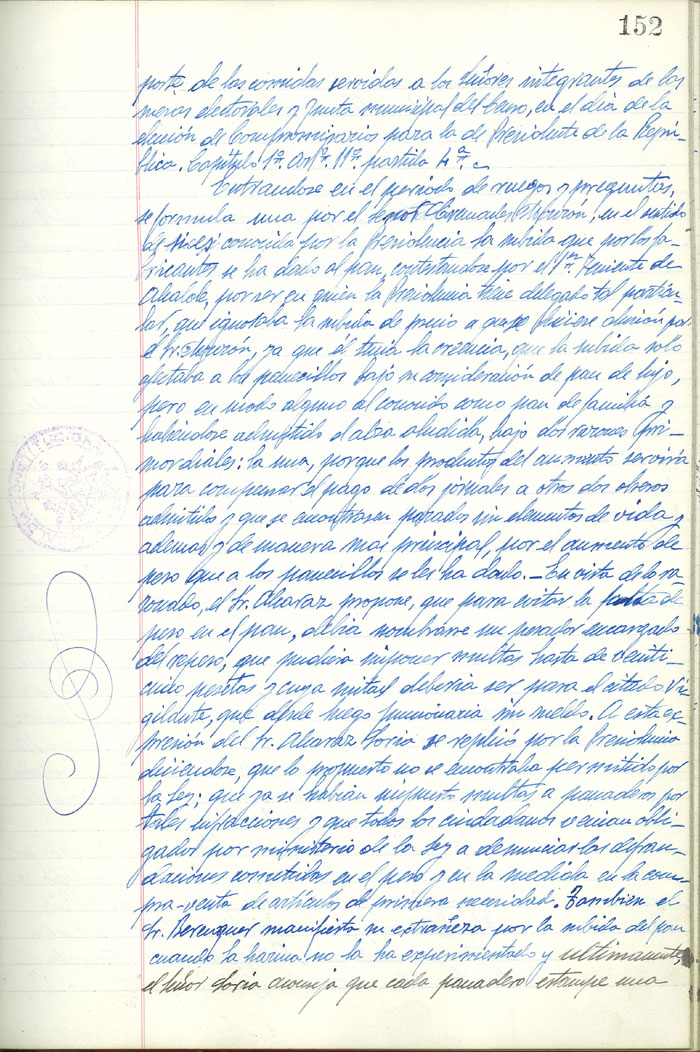 152
porte de las comidas servidas a los Señores integrantes de las
mesas electorales y Junta municipal del Censo, en el día de la
elección de Compromisarios para la de Presidente de la Repú-
blica. Capítulo 1º. Artº. 11º. partida 4ª.
Entrandose en el período de ruegos y preguntas,
se formula una por el Señor Azpurón, en el sentido
de si es conocida por la Presidencia la subida que por los fa-
bricantes se ha dado al pan, contestandose por el 1er. Teniente de
Alcalde, por ser en quien la Presidencia tiene delegado tal particu-
lar, que ignoraba la subida de precio a que hiciere alusión por
el Sr. Azpurón, ya que él tenia la creencia, que la subida solo
afectaba a los panecillos bajo su consideración de pan de lujo,
pero en modo alguno al conocido como pan de familia y
habiendose admitido el alza aludida, bajo dos razones pri-
mordiales: la una, porque los productos del aumento serviría
para compensar el pago de dos jornales a otros dos obreros
admitidos y que se encontrasen parados sin elementos de vida y
ademas y de manera mas principal, por el aumento de
peso que a los panecillos se les ha dado.- En vista de lo ra-
zonado, el Sr. Alcaraz propone, que para evitar la falta de
peso en el pan, debia nombrarse un pesador encargado
del repeso, que pudiera imponer multas hasta de veinti-
cinco pesetas y cuya mitad deberia ser para el citado Vi-
gilante, que desde luego funcionaria sin sueldo. A esta ex-
presión del Sr. Alcaraz Soria se replicó por la Presidencia
diciendose, que lo propuesto no se encontraba permitido por
la Ley; que ya se habian impuesto multas a panaderos por
tales infracciones y que todos los ciudadanos venian obli-
gados por ministerio de la Ley a denunciar las defrau-
daciones cometidas en el peso y en la medida en la com-
pra-venta de articulos de primera necesidad. Tambien el
Sr. Berenguer manifiesta su extrañeza por la subida del pan
cuando la harina no la ha experimentado y ultimamente,
el Señor Soria aconseja que cada panadero estampe una